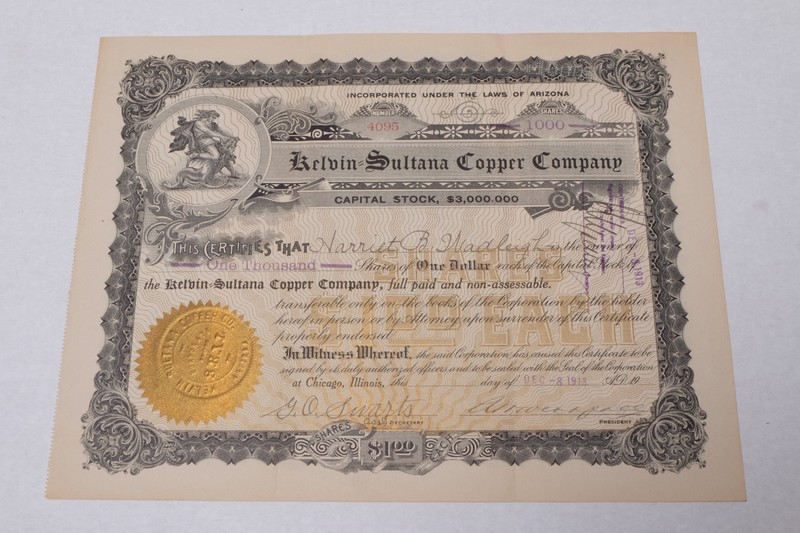 INCORPORATED UNDER THE LAWS OF ARIZONA
NUMBER SHARES
4095 1000
Kelvin-Sultana Copper Company
CAPITAL STOCK, $3,000.000
THIS CERTIFIES THAT Harriet B. Wadleigh is the owner of
One Thousand Shares of One Dollar each of the Capital Stock of
the Kelvin-Sultana Copper Company, full paid and non-assessable.
transferable only on the books of the Corporation by the holder
hereof in person or by Attorney upon surrender of this Certificate
properly endorsed.
In Witness Whereof, the said Corporation has caused this Certificate to be
signed by its duly authorized officers and to be sealed with the Seal of the Corporation
at Chicago, Illinois, this day of DEC -8 1913 A.D. 19
G.O. Swarts
Asst SECRETARY PRESIDENT
SHARES
$1.00 EACH
SHARES
$1.00
SEAL
1913